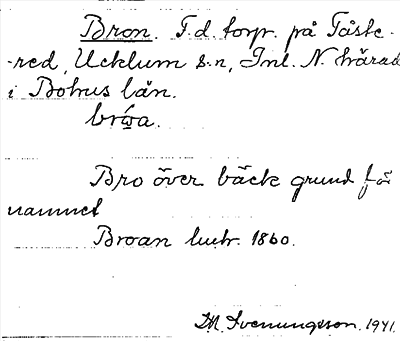 Bron. F.d. torp. på Tåste-
-red, Ucklum s:n, Inl. N. härad
i Bohus län.
Bro över bäck grund för
namnet
Broan hutr. 1860.
M. Svenungsson. 1941.